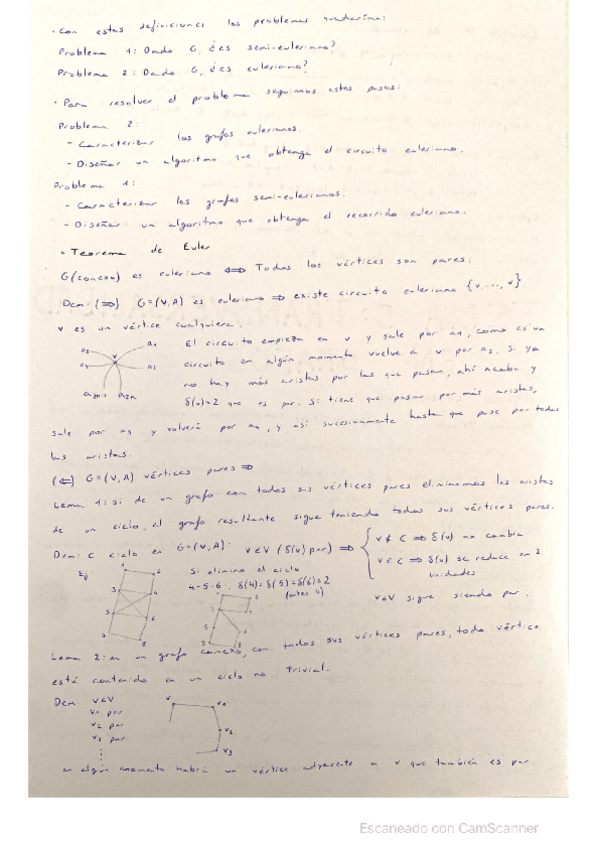 · Con estas definiciones los problemas quedarían:
Problema 1: Dado G, ¿es semi-euleriano?
Problema 2: Dado G, ¿es euleriano?
· Para resolver el problema seguimos estos pasos:
Problema 2:
- Caracterizar los grafos eulerianos.
- Diseñar un algoritmo que obtenga el circuito euleriano.
Problema 1:
- Caracterizar los grafos semi-eulerianos.
- Diseñar un algoritmo que obtenga el recorrido euleriano.
· Teorema de Euler
G(conexo) es euleriano ⟺ Todos los vértices son pares.
Dem: (⟹) G=(V,A) es euleriano ⟹ existe circuito euleriano {v, ..., v}
v es un vértice cualquiera.
El circuito empieza en v y sale por a1, como es un
circuito en algún momento vuelve a v por a2. Si ya
no hay más aristas por las que pasar, ahí acaba y
δ(v)=2 que es par. Si tiene que pasar por más aristas,
a1
a2
a3
a4
v
a2n-1 a2n
sale por a3 y volverá por a4, y así sucesivamente hasta que pase por todas
las aristas.
(⟸) G=(V,A) vértices pares ⟹
Lema 1: Si de un grafo con todos sus vértices pares eliminamos las aristas
de un ciclo, el grafo resultante sigue teniendo todos sus vértices pares.
Dem: C ciclo en G=(V,A): v∈V (δ(v) par) ⟹ { v∉C ⟹ δ(v) no cambia
v∈C ⟹ δ(v) se reduce en 2
unidades
Ej
Si elimino el ciclo
4-5-6: δ(4)=δ(5)=δ(6)=2
(antes 4)
v∈V sigue siendo par.
1 2
3 4
5 6
Lema 2: en un grafo conexo, con todos sus vértices pares, todo vértice
está contenido en un ciclo no trivial.
Dem: v∈V
v1 par
v2 par
v3 par
v v1
v2
v3
en algún momento habrá un vértice adyacente a v que también es par.
Escaneado con CamScanner